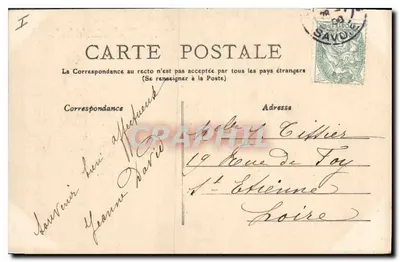 I
SAVOIE
CARTE POSTALE
La Correspondance au recto n'est pas acceptée par tous les pays étrangers
(Se renseigner à la Poste)
Correspondance
Adresse
Souvenir bien affectueux
Jeanne David
CRAPHIL
Melle Tissier
19 Rue de Foy
St Etienne
Loire